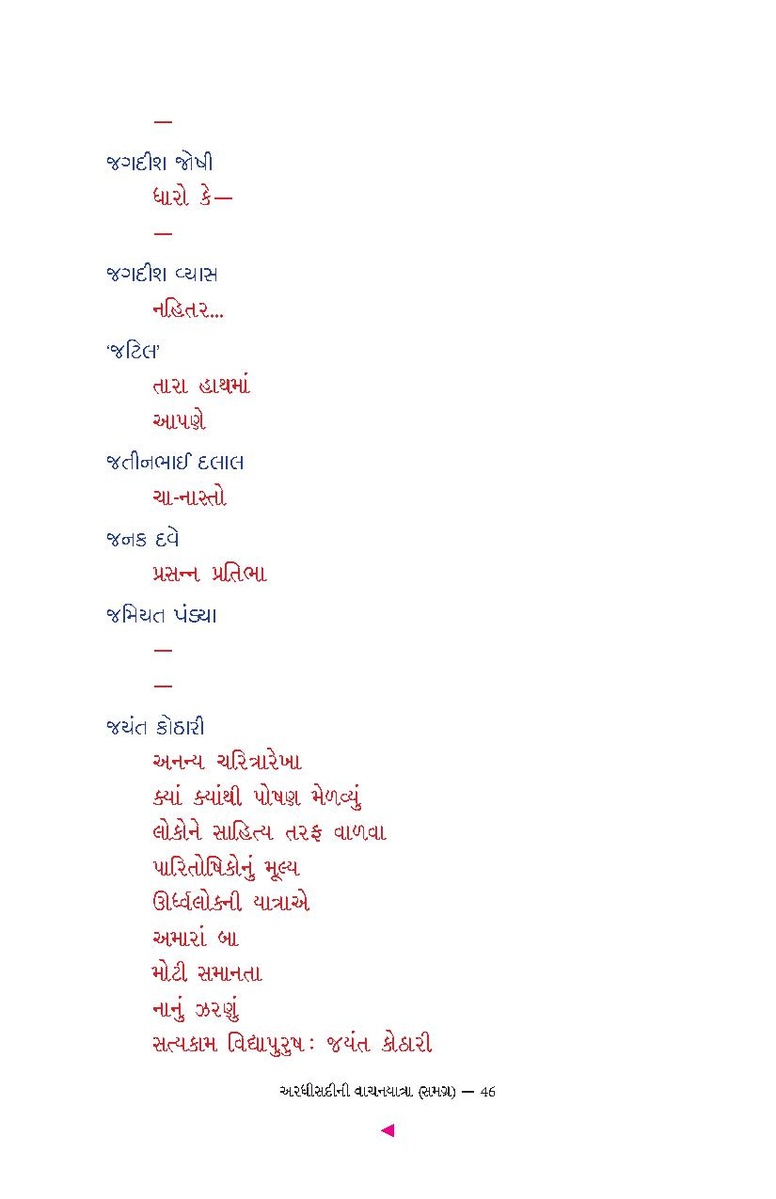 —
જગદીશ જોષી
ધારો કે—
—
જગદીશ વ્યાસ
નહિતર...
‘જટિલ’
તારા હાથમાં
આપણે
જતીનભાઈ દલાલ
ચા-નાસ્તો
જનક દવે
પ્રસન્ન પ્રતિભા
જમિયત પંડ્યા
—
—
જયંત કોઠારી
અનન્ય ચરિત્રારેખા
ક્યાં ક્યાંથી પોષણ મેળવ્યું
લોકોને સાહિત્ય તરફ વાળવા
પારિતોષિકોનું મૂલ્ય
ઊર્ધ્વલોકની યાત્રાએ
અમારાં બા
મોટી સમાનતા
નાનું ઝરણું
સત્યકામ વિદ્યાપુરુષ : જયંત કોઠારી
અરધીસદીની વાચનયાત્રા (સમગ્ર) — 46